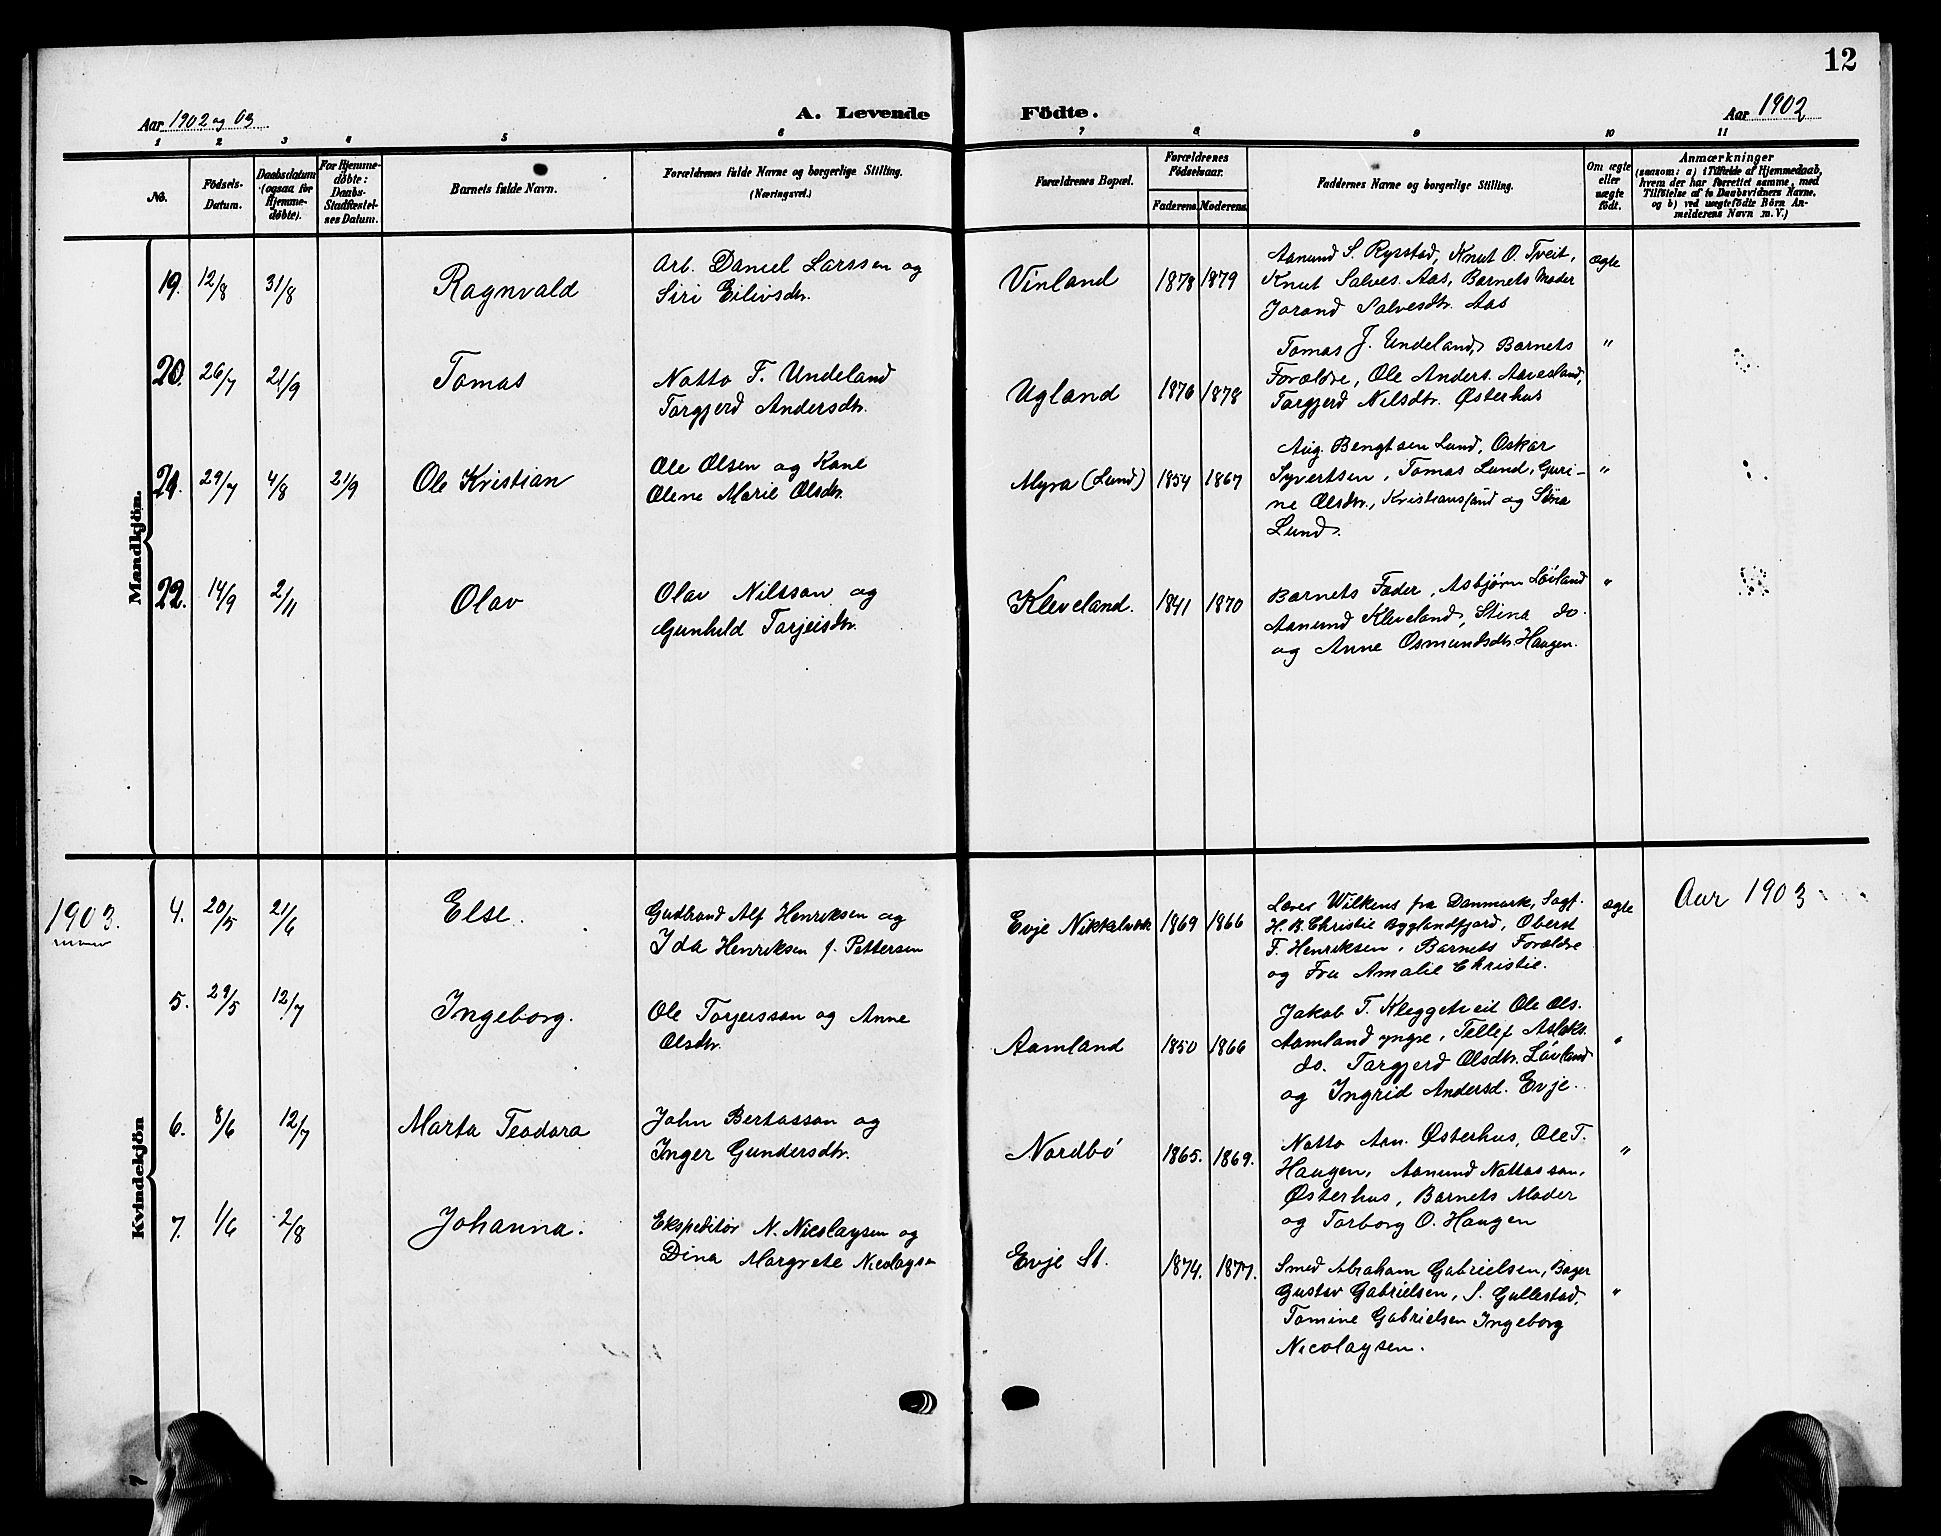 12
Aar 1902 og 03
A. Levende Födte.
Aar 1902
1 2 3 4 5 6 7 8 9 10 11
No.
Födsels-
Datum.
Daabsdatum
(ogsaa for
Hjemme-
döbte).
For Hjemme-
döbte:
Daabs-
Stadfæstel-
ses Datum.
Barnets fulde Navn.
Forældrenes fulde Navne og borgerlige Stilling.
(Næringsvei.)
Forældrenes Bopæl.
Forældrenes
Födselsaar.
Faderens. Moderens.
Faddernes Navne og borgerlige Stilling.
Om ægte
eller
uægte
födt.
Anmærkninger
(saasom: a) i Tilfælde af Hjemmedaab,
hvem der har forrettet samme, med
Tilföielse af to Daabsvidners Navne,
og b) ved uægtefödte Börn An-
melderens Navn m. V.)
Mandkjön.
19. 12/8 31/8 Ragnvald
Arb. Daniel Larssen og
Siri Eilivsdtr.
Vinland 1878 1879
Aanund S. Rysstad, Knut O. Tveit,
Knut Salves. Aas, Barnets Moder
Jorand Salvesdtr. Aas
ægte
20. 26/7 21/9 Tomas
Notto T. Undeland
Torgjerd Andersdtr.
Ugland 1876 1878
Tomas J. Undeland, Barnets
Forældre, Ole Anders. Aavesland,
Targjerd Nilsdtr. Østerhus
"
21. 29/7 4/8 21/9 Ole Kristian
Ole Olsen og Kone
Olene Marie Olsdtr.
Myra (Lund) 1854 1867
Aug. Bengtsen Lund, Oskar
Syvertsen, Tomas Lund, Guri-
ne Olsdtr., Kristiansand og Stina
Lund.
"
22. 14/9 2/11 Olav
Olav Nilsson og
Gunhild Tarjeisdtr.
Kleveland. 1841 1870
Barnets Fader, Asbjørn Løiland
Aanund Kleveland, Stina do.
og Anne Osmundsdtr. Haugen.
"
Kvindekjön
1903.
4. 20/5 21/6 Else.
Gudbrand Alf Henriksen og
Ida Henriksen f. Pettersen
Evje Nikkelverk 1869 1866
Læver Wilkens fra Danmark, Sagf.
H. B. Christie Byglandfjord, Oberst
F. Henriksen, Barnets Forældre
og Fru Amalie Christie.
ægte
Aar 1903
5. 29/5 12/7 Ingeborg.
Ole Torjeisson og Anne
Olsdtr.
Aamland 1850 1866
Jakob T. Kleggetveit Ole Ols.
Aamland yngre, Tellef Aslaks.
do. Targjerd Olsdtr. Løvland
og Ingrid Andersd. Evje.
"
6. 8/6 12/7 Marta Teodora
John Bertosson og
Inger Gundersdtr.
Nordbø 1865. 1869.
Notto Aan. Østerhus, Ole T.
Haugen, Aanund Nottosson,
Østerhus, Barnets Moder
og Torborg O. Haugen
"
7. 1/6 2/8 Johanna.
Ekspeditør N. Nicolaysen og
Dina Margrete Nicolaysen
Evje St. 1874. 1877.
Smed Abraham Gabrielsen, Bager
Gustav Gabrielsen, S. Gullestad,
Tomine Gabrielsen Ingeborg
Nicolaysen.
"